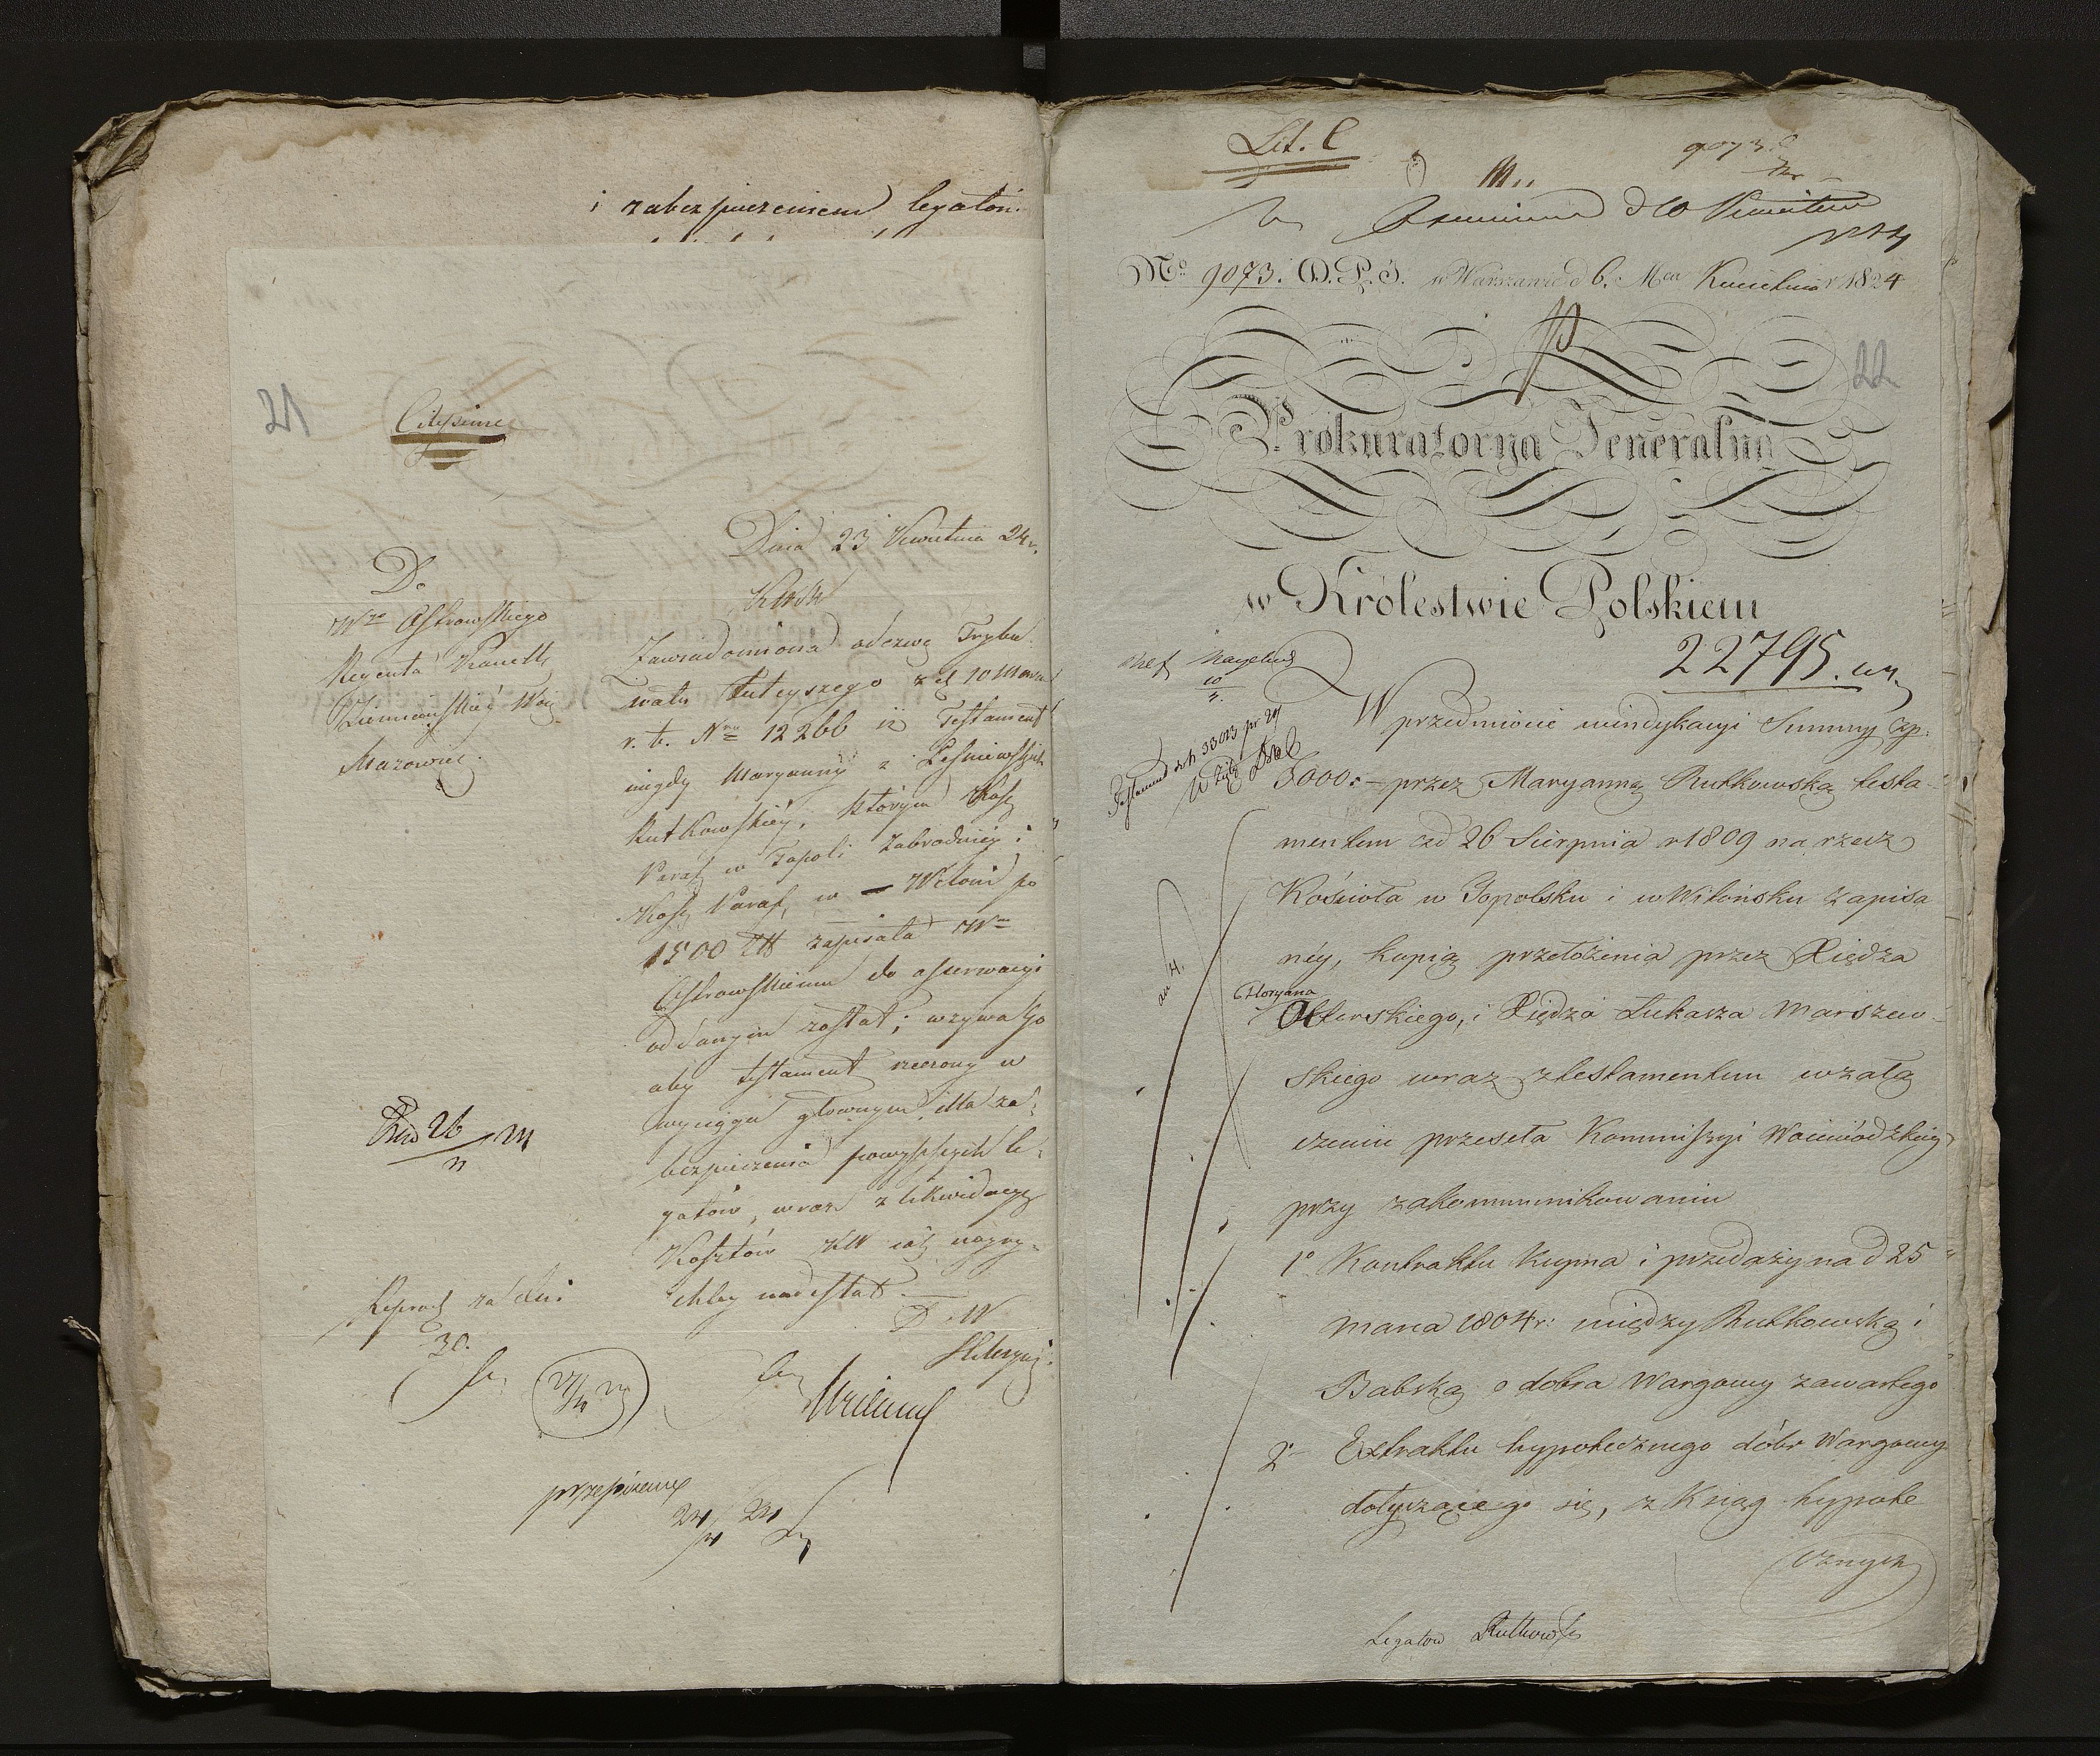 i zabezpieczeniem legatów
21
Citissime
Dnia 23 Kwietnia 24 r.
Do
Wgo Ostrowskiego
Regenta Kancell.
Ziemiańskiéy Wój.
Mazowiec.
KWM
Zawiadomiona odezwą Trybu
nału tuteyszego z d 10 Marca
r. b. Nro 12266 iż Testament
niegdy Maryanny z Leśniewskich
Rutkowskiéy, którym Kość
Paraf w Topoli Zabrodniéy i
Kość Paraf, w Witoni po
1500 zł zapisała Wmu
Ostrowskiemu do asserwacyi
oddanym został; wzywa Go
aby testament rzeczony w
wyciągu głównym dla za-
bezpieczenia powyższych le-
gatów, wraz z likwidacyą
Kosztów KW iak nayry-
chley nadesłał.
Reprod za dni
30.
przepisano
24/4 24
Lit. C
9073
No 9073. O.P.S. w Warszawie d 6. Mca Kwietnia 1824
22
Prokuratorya Jeneralna
w Królestwie Polskiem
22795.
W przedmiocie windykacyi Summy Złp.
3000:- przez Maryannę Rutkowską testa-
mentem z d 26 Sierpnia r 1809 na rzecz
Kościoła w Topolsku i w Witońsku zapisa
néy, kopią przełożenia przez Xiędza
Floryana
Olterskiego, i Xiędza Łukasza Marszew-
skiego wraz z testamentem w załą
czeniu przeseła Kommissyi Woiewódzkiéy
przy zakommunikowaniu
1o Kontraktu Kupna i przedaży na d 25
marca 1804 r: między Rutkowską i
Babską o dobra Wargawy zawartego
2o Extraktu hypotecznego dóbr Wargawy
dotyczącego się, z Ksiąg hypote
cznych
Legatow Rutkowsk